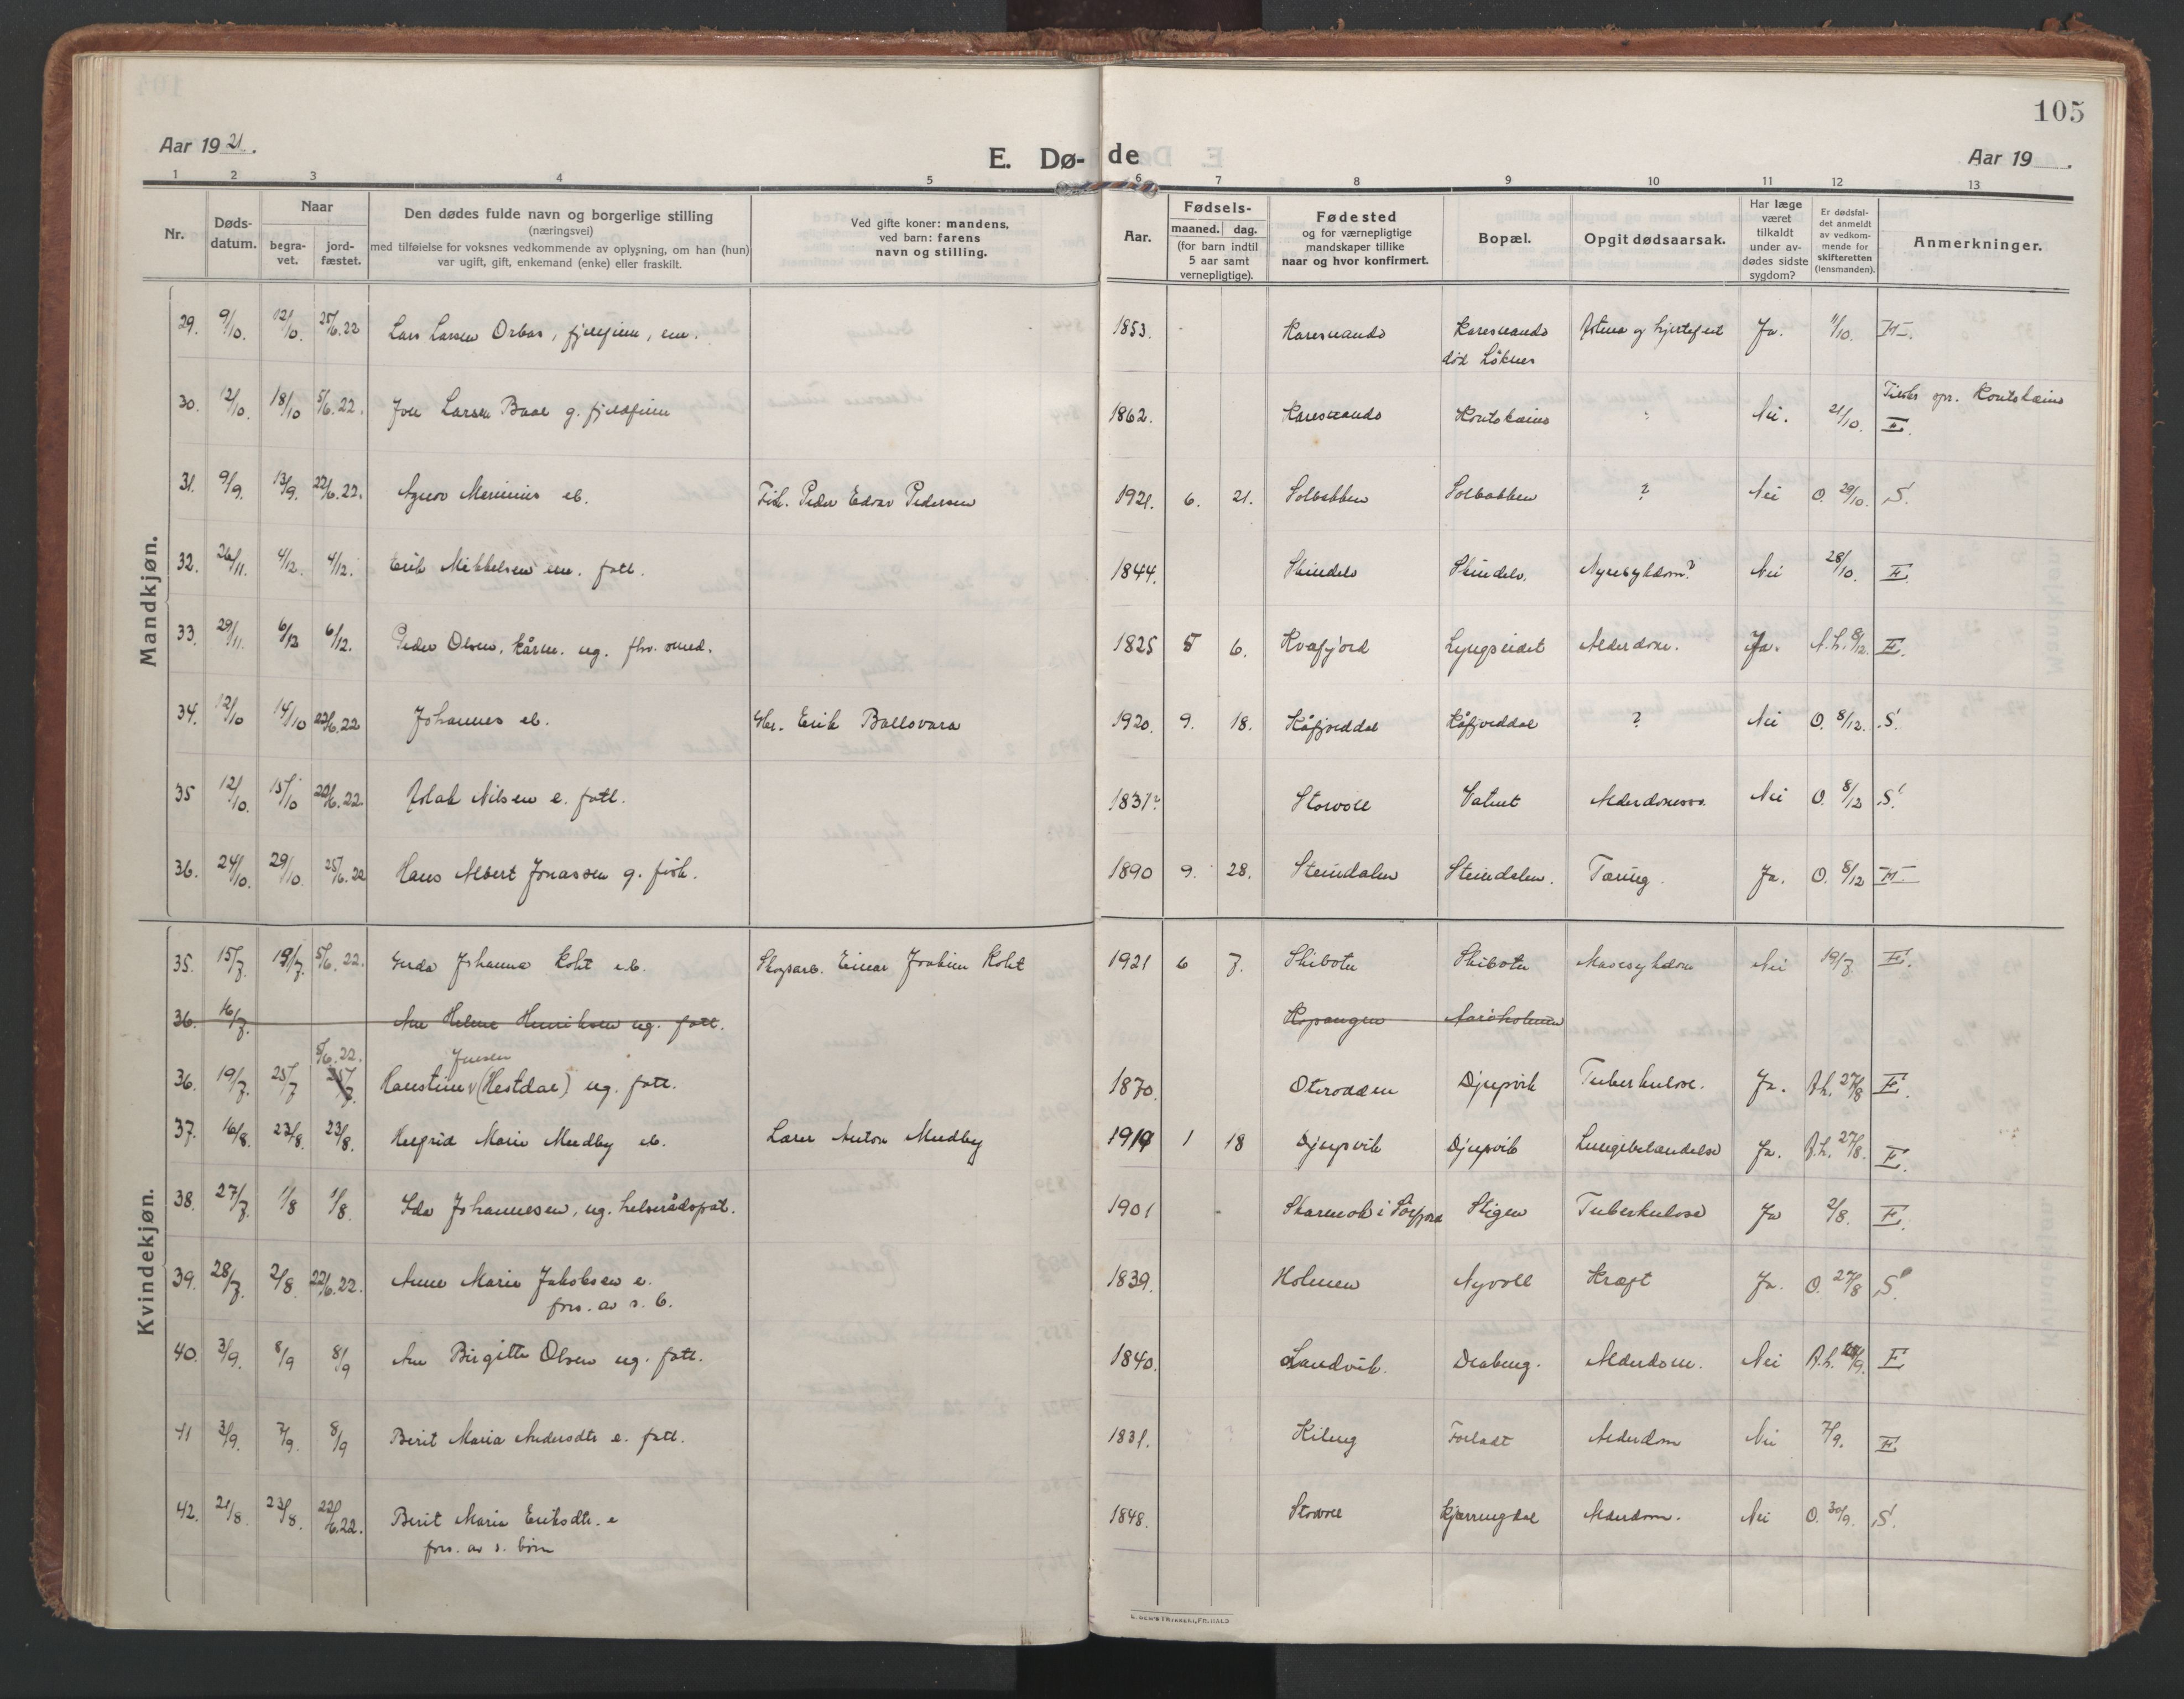 105
Aar 19 21.
E. Dø-
de
Aar 19 .
1 2 3 4 5 6 7 8 9 10 11 12 13
Nr.
Døds-
datum.
Naar
begra-
vet.
jord-
fæstet.
Den dødes fulde navn og borgerlige stilling
(næringsvei)
med tilføielse for voksnes vedkommende av oplysning, om han (hun)
var ugift, gift, enkemand (enke) eller fraskilt.
Ved gifte koner: mandens,
ved barn: farens
navn og stilling.
Aar.
Fødsels-
maaned. dag.
(for barn indtil
5 aar samt
vernepligtige).
Fødested
og for værnepligtige
mandskaper tillike
naar og hvor konfirmert.
Bopæl.
Opgit dødsaarsak.
Har læge
været
tilkaldt
under av-
dødes sidste
sygdom?
Er dødsfal-
det anmeldt
av vedkom-
mende for
skifteretten
(lensmanden).
Anmerkninger.
Mandkjøn.
29. 9/10. 12/10. 25/6.22 Lars Larsen Orbos, fjellfinn, em. 1853. Karesuando Karesuando Astma og hjertefeil Ja. 11/10.
død Løknes
30. 12/10. 18/10 5/6.22. Jon Larsen Baal g. fjeldfinn 1862. Karesuando Koutokeino Nei. 21/10. opr. Koutokeino
II.
31. 9/9. 13/9. 22/6.22. Marinius eb. Fisk. Peder Edvar Pedersen 1921. 6. 21. Solbakken Solbakken ? Nei O. 29/10. S.
32. 26/11. 4/12. 4/12. Erik Mikkelsen em. fatt. 1844. Skindelv Skindelv. Nyresykdom? Nei 28/10. II.
33. 29/11. 6/12 6/12. Peder Olsen, kårm. ug. fhv. smed. 1825 5 6. Kvæfjord Lyngseidet Alderdom. Ja. A.h. 8/12. II.
34. 12/10 14/10 22/6.22 Johannes eb. Gbr. Erik Ballovara 1920. 9. 18. Kåfjorddal Kåfjorddal ? Nei O. 8/12. S.
35 12/10. 15/10 20/6.22. Isak Nilsen e. fatt. 1831? Storvoll Vatnet Alderdomssv. Nei O. 8/12 S.
36. 24/10. 29/10. 25/6.22 Hans Albert Jonassen g. fisk. 1890 9. 28. Steindalen Steindalen. Tæring. Ja. O. 8/12
Kvindekjøn.
35. 15/7. 19/7. 5/6.22. Gerda Johanna Koht eb. Skogsarb. Einar Joakim Koht 1921 6 7. Skibotn Skibotn Mavesykdom Nei 19/7. II.
36. 16/7. Ane Helene Henriksen ug. fatt. Kopangen Aarøholmen
5/6.22. Jensen
36. 19/7. 25/7 25/7. Hanstine v (Hestdal) ug. fatt. 1870. Oterodden Djupvik Tuberkulose. Ja. A.h. 27/8 II.
37. 16/8. 23/8. 23/8. Hergrid Marie Mudby eb. Lærer Anton Mudby 1919 1 18 Djupvik Djupvik Lungebetændelse Ja. A.h. 27/8. II.
38. 27/7. 1/8 1/8. Ida Johannesen, ug. helserådspat. 1901 Skarmok i Sörfjord Stigen Tuberkulose Ja 2/8. II.
39. 28/7. 2/8. 22/6.22. Anne Marie Jakobsen e. 1839. Holmen Nyvoll Kræft Ja. O. 27/8 S.
fors. av s. b.
40. 3/9. 8/9 8/9 Ane Birgitte Olsen ug. fatt. 1840. Sandvik. Draberg. Alderdom. Nei A.h. /9. II
41 3/9. 7/9. 8/9 Berit Maria Andersdtr e. fatt. 1831. Kileng Forladt Alderdom Nei 7/9. II
42. 21/8. 23/8. 22/6.22. Berit Maria Eriksdtr. e 1848. Storvoll Kjerringdal Alderdom. Nei O. 30/9. S.
fors. av s. börn